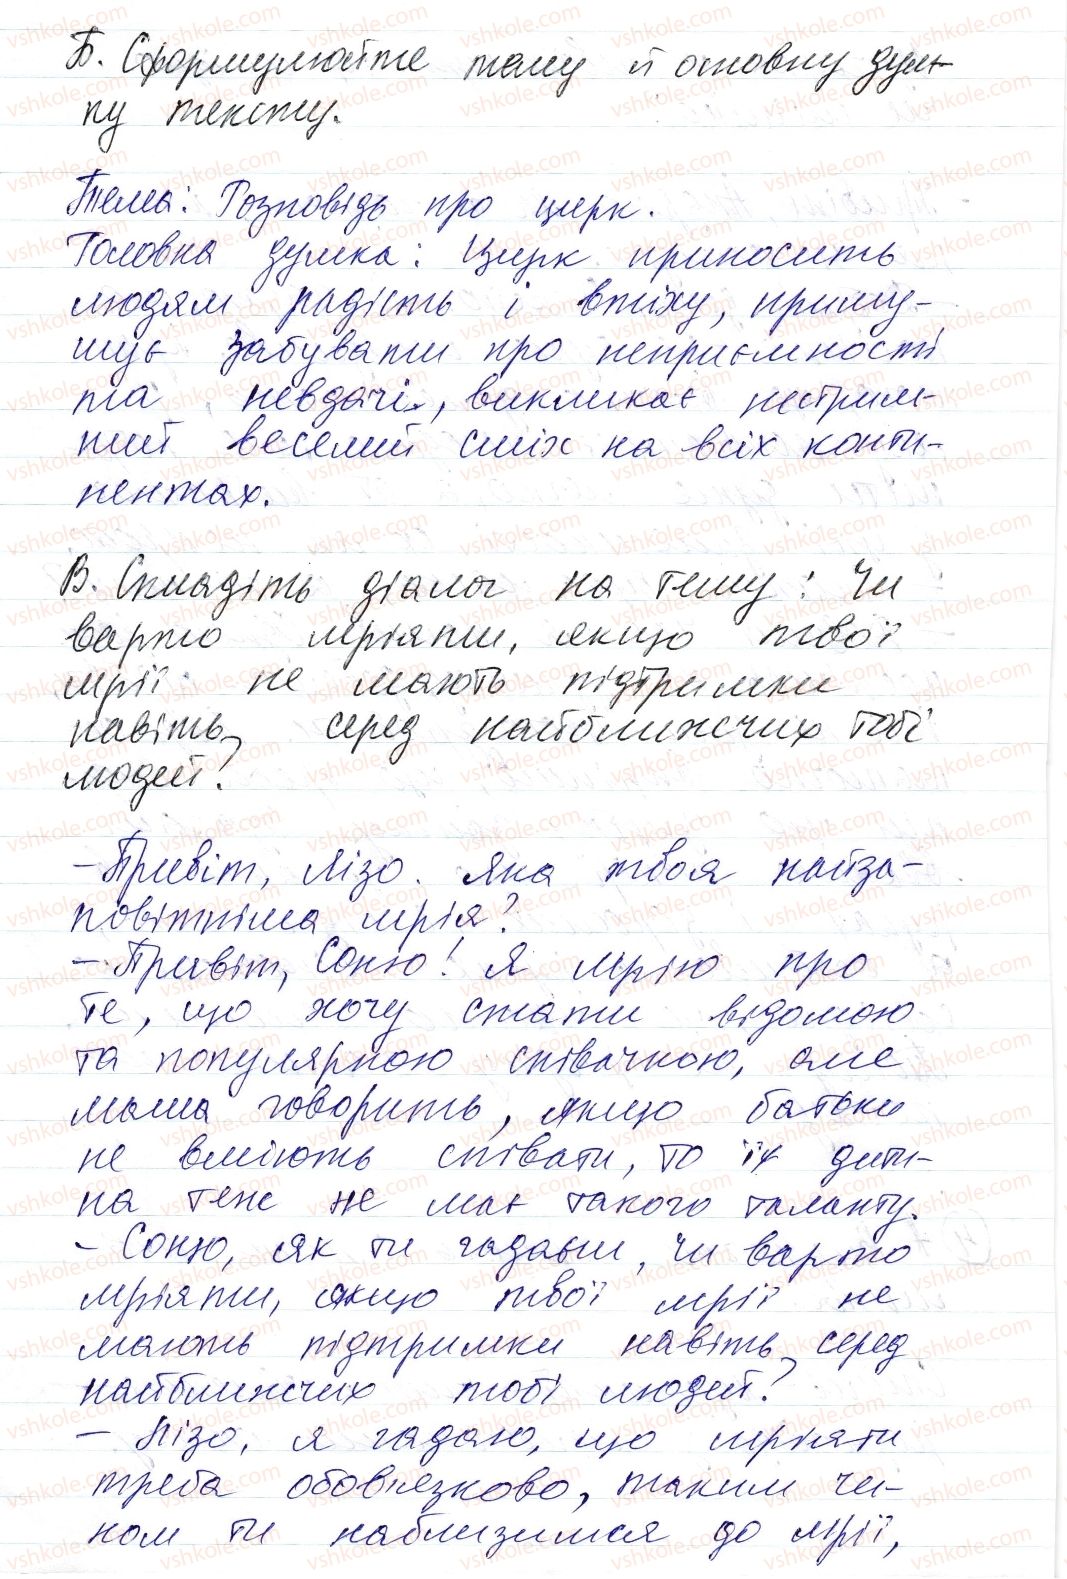 Б. Сформулюйте тему й основну дум-
ку тексту.
Тема: Розповідь про цирк.
Головна думка: Цирк приносить
людям радість і втіху, приму-
шує забувати про неприємності
та невдачі, викликає нестрим-
ний веселий сміх на всіх конти-
нентах.
В. Складіть діалог на тему: Чи
варто мріяти, якщо твої
мрії не мають підтримки
навіть серед найближчих тобі
людей?
- Привіт, Лізо. Яка твоя найза-
повітніша мрія?
- Привіт, Соню! Я мрію про
те, що хочу стати відомою
та популярною співачкою, але
мама говорить, якщо батьки
не вміють співати, то їх дити-
на теж не має такого таланту.
- Соню, як ти гадаєш, чи варто
мріяти, якщо твої мрії не
мають підтримки навіть серед
найближчих тобі людей?
- Лізо, я гадаю, що мріяти
треба обов'язково, таким чи-
ном ти наблизишся до мрії,